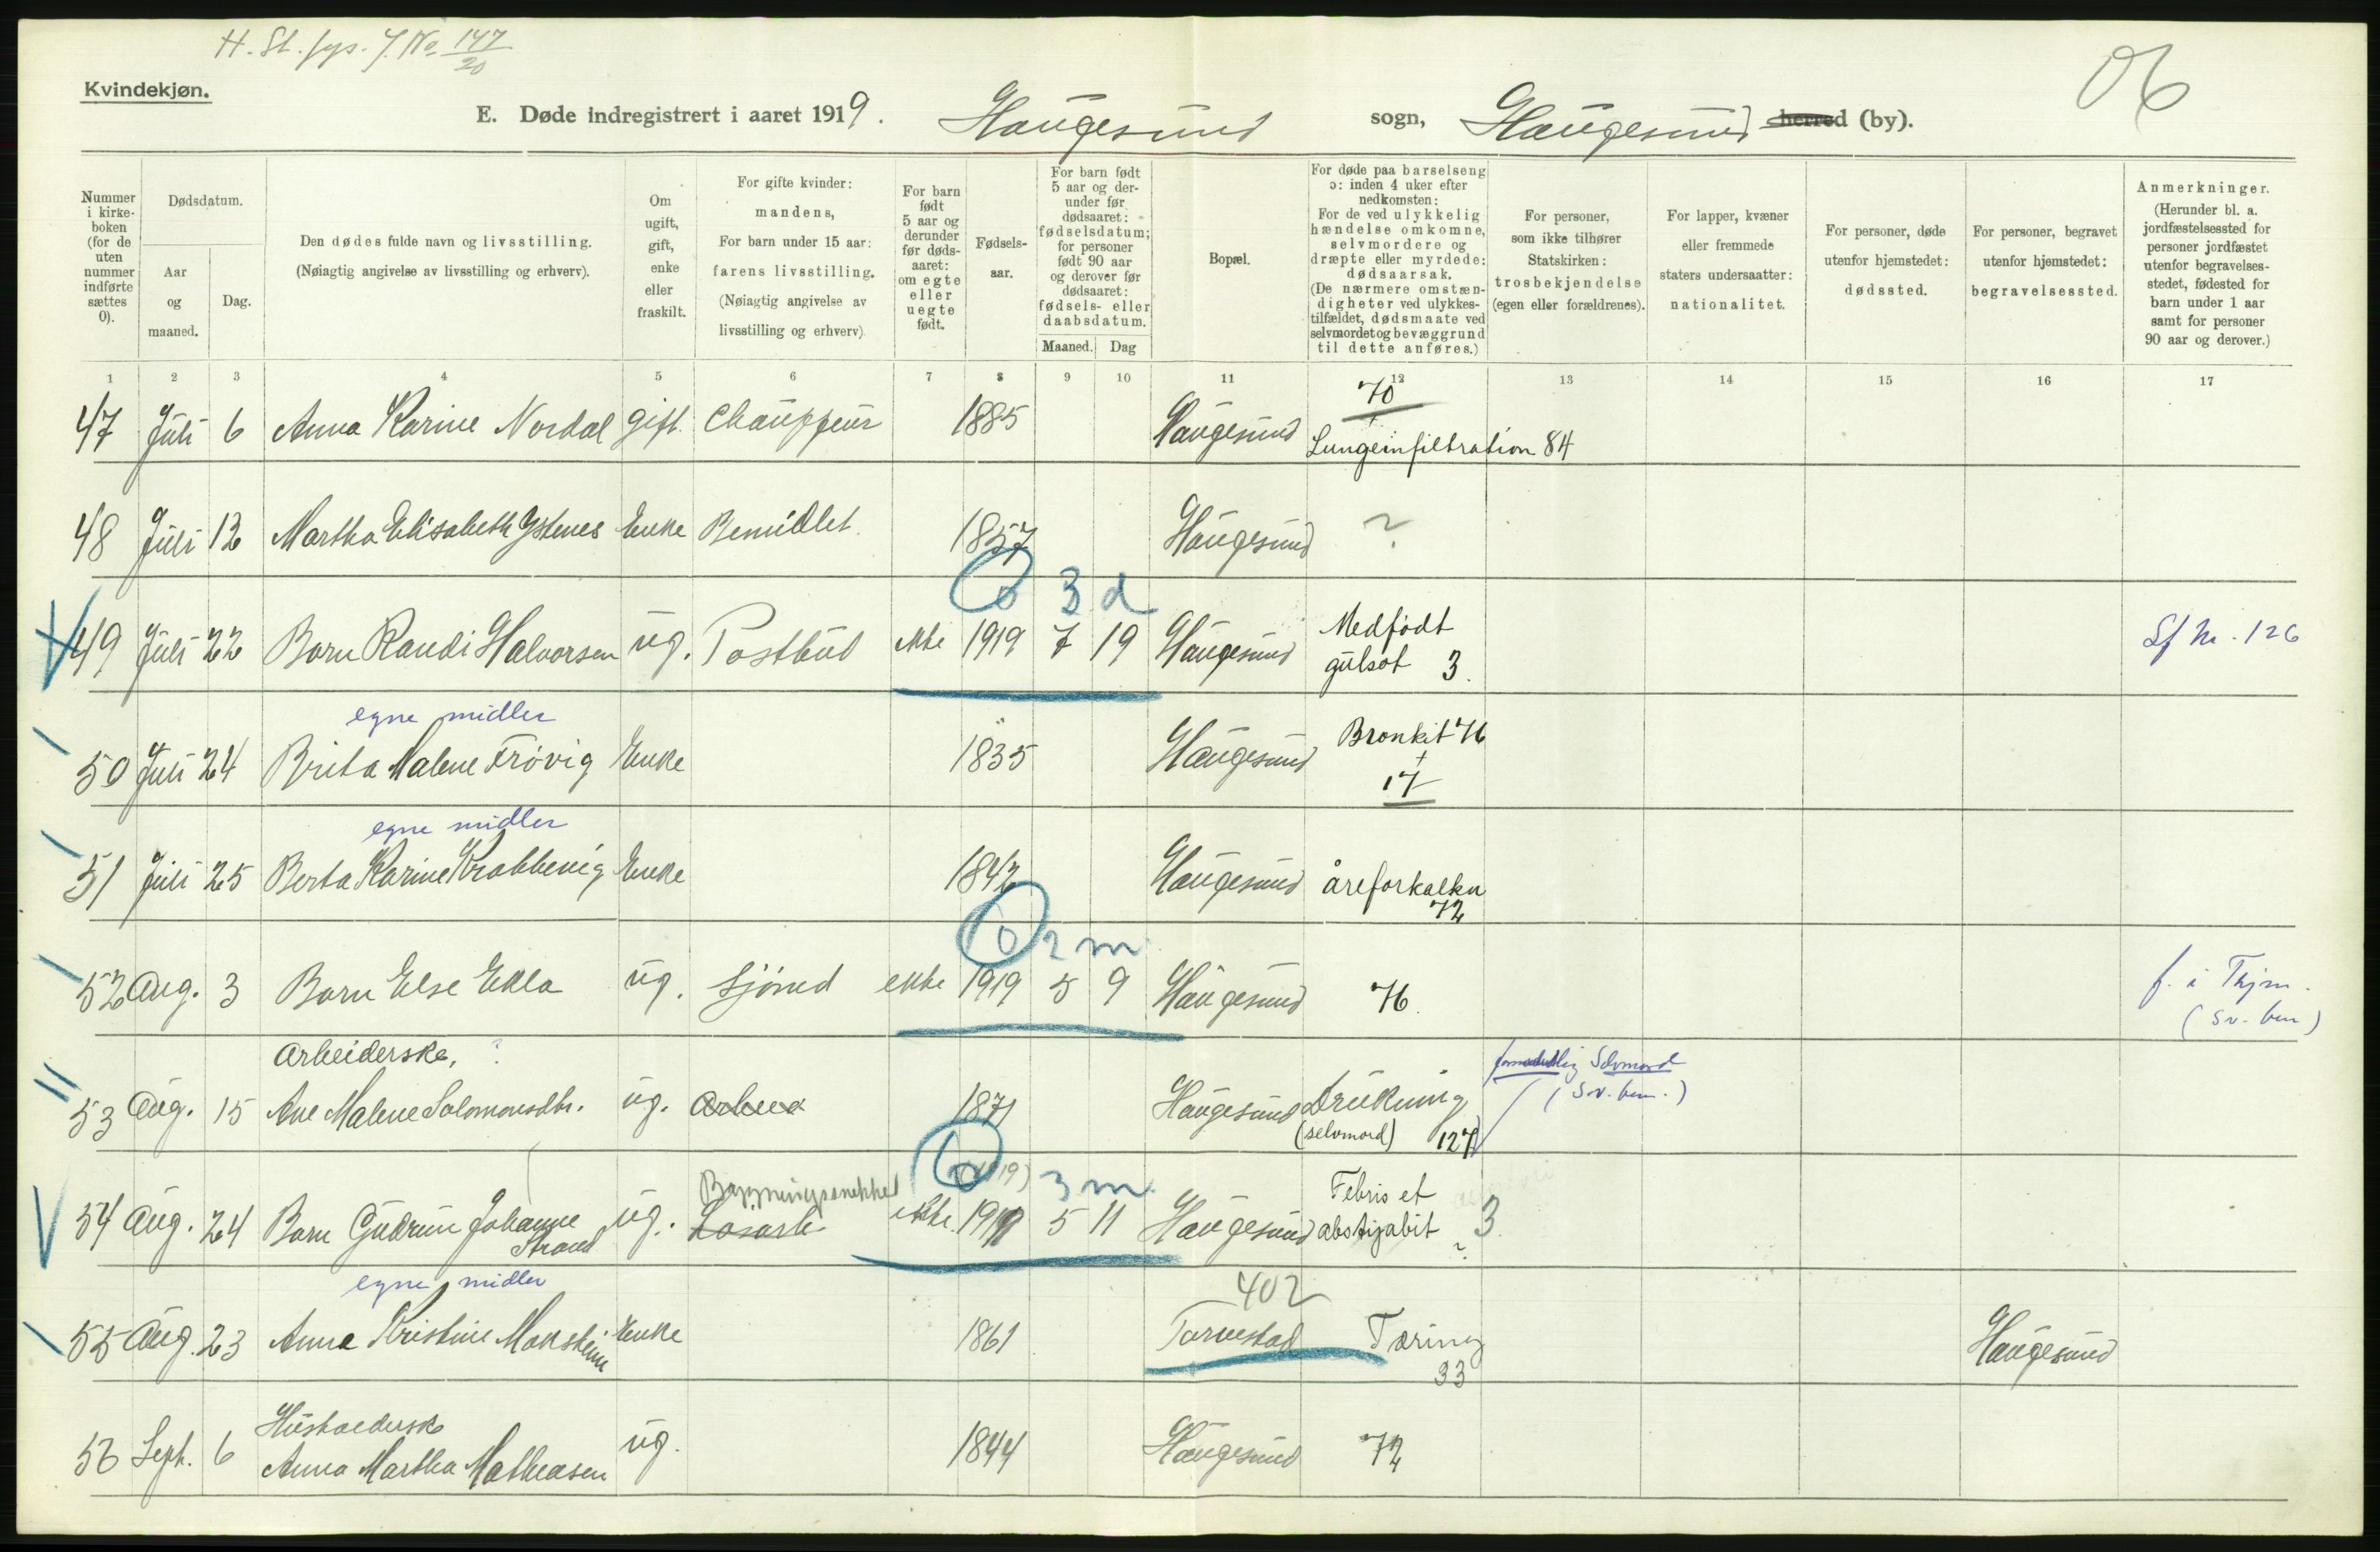 H. St. fys. J. No. 147/20
06
Kvindekjøn.
E. Døde indregistrert i aaret 1919. Haugesund sogn, Haugesund herred (by).
Nummer i kirke-boken (for de uten nummer indførte sættes 0).
Dødsdatum.
Aar og maaned.
Dag.
Den dødes fulde navn og livsstilling.
(Nøiagtig angivelse av livsstilling og erhverv).
Om ugift, gift, enke eller fraskilt.
For gifte kvinder: mandens, For barn under 15 aar: farens livsstilling. (Nøiagtig angivelse av livsstilling og erhverv)
For barn født 5 aar og derunder før døds-aaret: om egte eller uegte født.
Fødsels-aar.
For barn født 5 aar og der-under før dødsaaret: fødselsdatum; for personer født 90 aar og derover før dødsaaret: fødsels- eller daabsdatum.
Maaned. Dag
Bopæl.
For døde paa barselseng ɔ: inden 4 uker efter nedkomsten: For de ved ulykkelig hændelse omkomne, selvmordere og dræpte eller myrdede: dødsaarsak. (De nærmere omstæn-digheter ved ulykkes-tilfældet, dødsmaate ved selvmordet og bevæggrund til dette anføres.)
For personer, som ikke tilhører Statskirken: trosbekjendelse (egen eller forældrenes).
For lapper, kvæner eller fremmede staters undersaatter: nationalitet.
For personer, døde utenfor hjemstedet: dødssted.
For personer, begravet utenfor hjemstedet: begravelsessted.
Anmerkninger. (Herunder bl. a. jordfæstelsessted for personer jordfæstet utenfor begravelses-stedet, fødested for barn under 1 aar samt for personer 90 aar og derover.)
1 2 3 4 5 6 7 8 9 10 11 12 13 14 15 16 17
70
47 Juli 6 Anna Karine Nordal gift. Chauffeur 1885 Haugesund Lungeinfiltration 84
48 Juli 12 Martha Elisabeth Ystenes Enke Bemidlet. 1857 Haugesund ?
0 3 d
49 Juli 22 Barn Randi Halvorsen ug. Postbud ekte 1919 7 19 Haugesund Medfødt gulsot 3. Sf Nr. 126
egne midler
50 Juli 24 Brita Malene Frøvig Enke 1835 Haugesund Bronkit 76
+
17
egne midler
51 Juli 25 Berta Karine Krabbevig Enke 1842 Haugesund åreforkalkn 72
0 2 m
52 Aug. 3 Barn Else Ekla ug. Sjømd ekte 1919 5 9 Haugesund 76. f. i Thjm. (sv. ben)
Arbeiderske, ?
53 Aug. 15 Ane Malene Salomonsdtr. ug. 1871 Haugesund Drukning (selvmord) 127 formodentlig Selvmord (sv. ben.)
0 (1919) 3 m
54 Aug. 24 Barn Gudrun Johanne Strand ug. Bygningssnekker Løsarb ekte. 1919 5 11 Haugesund Febris et 3
?
egne midler
402
55 Aug. 23 Anna Kristine Enke 1861 Torvestad Tæring 33 Haugesund
Husholderske
56 Sept. 6 Anna Martha Matheasen ug. 1844 Haugesund 72